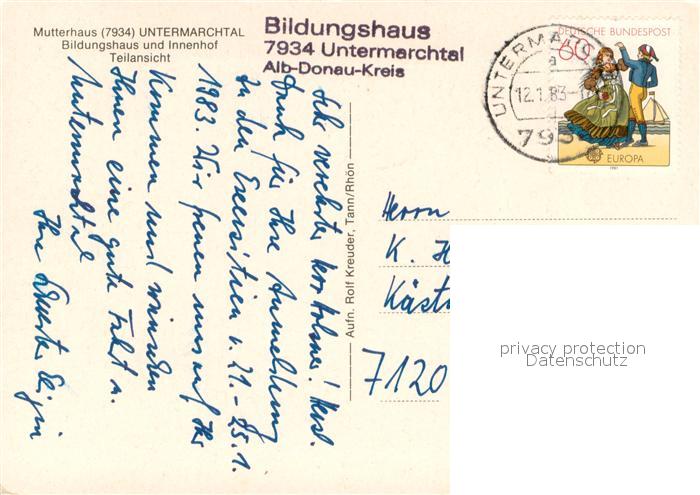 Mutterhaus (7934) UNTERMARCHTAL
Bildungshaus und Innenhof
Teilansicht
Bildungshaus
7934 Untermarchtal
Alb-Donau-Kreis
DEUTSCHE BUNDESPOST
60
EUROPA
1981
UNTERMARC
a
12.1.83-1
793
Sehr verehrter Herr! Herzl.
Dank für Ihre Anmeldung
zu den Exerzitien v. 21.-25.1.
1983. Wir freuen uns auf Ihr
Kommen und wünschen
Ihnen eine gute Fahrt n.
Untermarchtal
Ihre Schwester
Aufn. Rolf Kreuder, Tann/Rhön
Herrn
K. H
Kästn
7120
privacy protection
Datenschutz